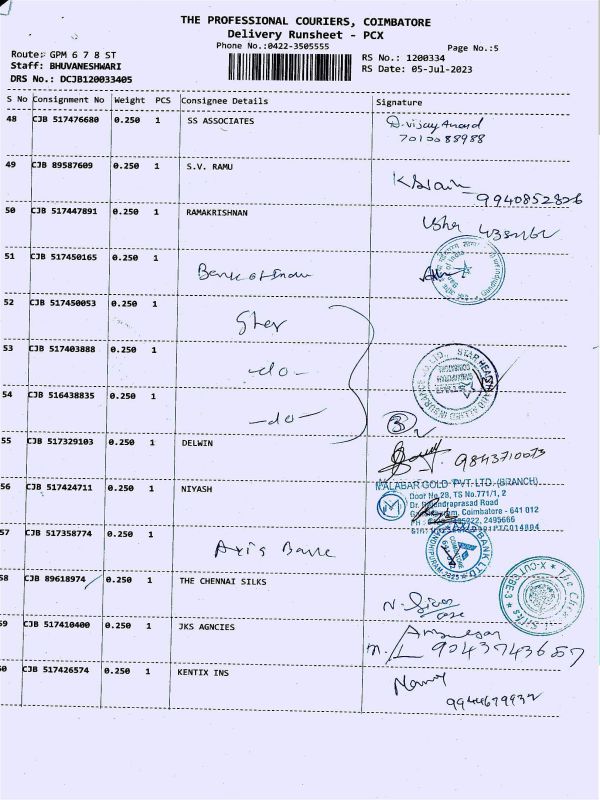 THE PROFESSIONAL COURIERS, COIMBATORE
Delivery Runsheet - PCX
Phone No.:0422-3505555
Page No.:5
Route: GPM 6 7 8 ST
RS No.: 1200334
Staff: BHUVANESHWARI
RS Date: 05-Jul-2023
DRS No.: DCJB120033405
S No Consignment No Weight PCS Consignee Details Signature
48 CJB 517476680 0.250 1 SS ASSOCIATES D.vijay Anand
7010088988
49 CJB 89587609 0.250 1 S.V. RAMU
9940852826
50 CJB 517447891 0.250 1 RAMAKRISHNAN Usha
51 CJB 517450165 0.250 1 Bank of India
52 CJB 517450053 0.250 1 Star
53 CJB 517403888 0.250 1 -do-
54 CJB 516438835 0.250 1 -do- 3
55 CJB 517329103 0.250 1 DELWIN 9843710073
56 CJB 517424711 0.250 1 NIYASH
MALABAR GOLD PVT. LTD. (BRANCH)
Door No.28, TS No.771/1, 2
Dr. Rajendraprasad Road
Coimbatore - 641 012
57 CJB 517358774 0.250 1 Axis Bank
58 CJB 89618974 0.250 1 THE CHENNAI SILKS
59 CJB 517410400 0.250 1 JKS AGNCIES
9043743657
60 CJB 517426574 0.250 1 KENTIX INS
9944679932